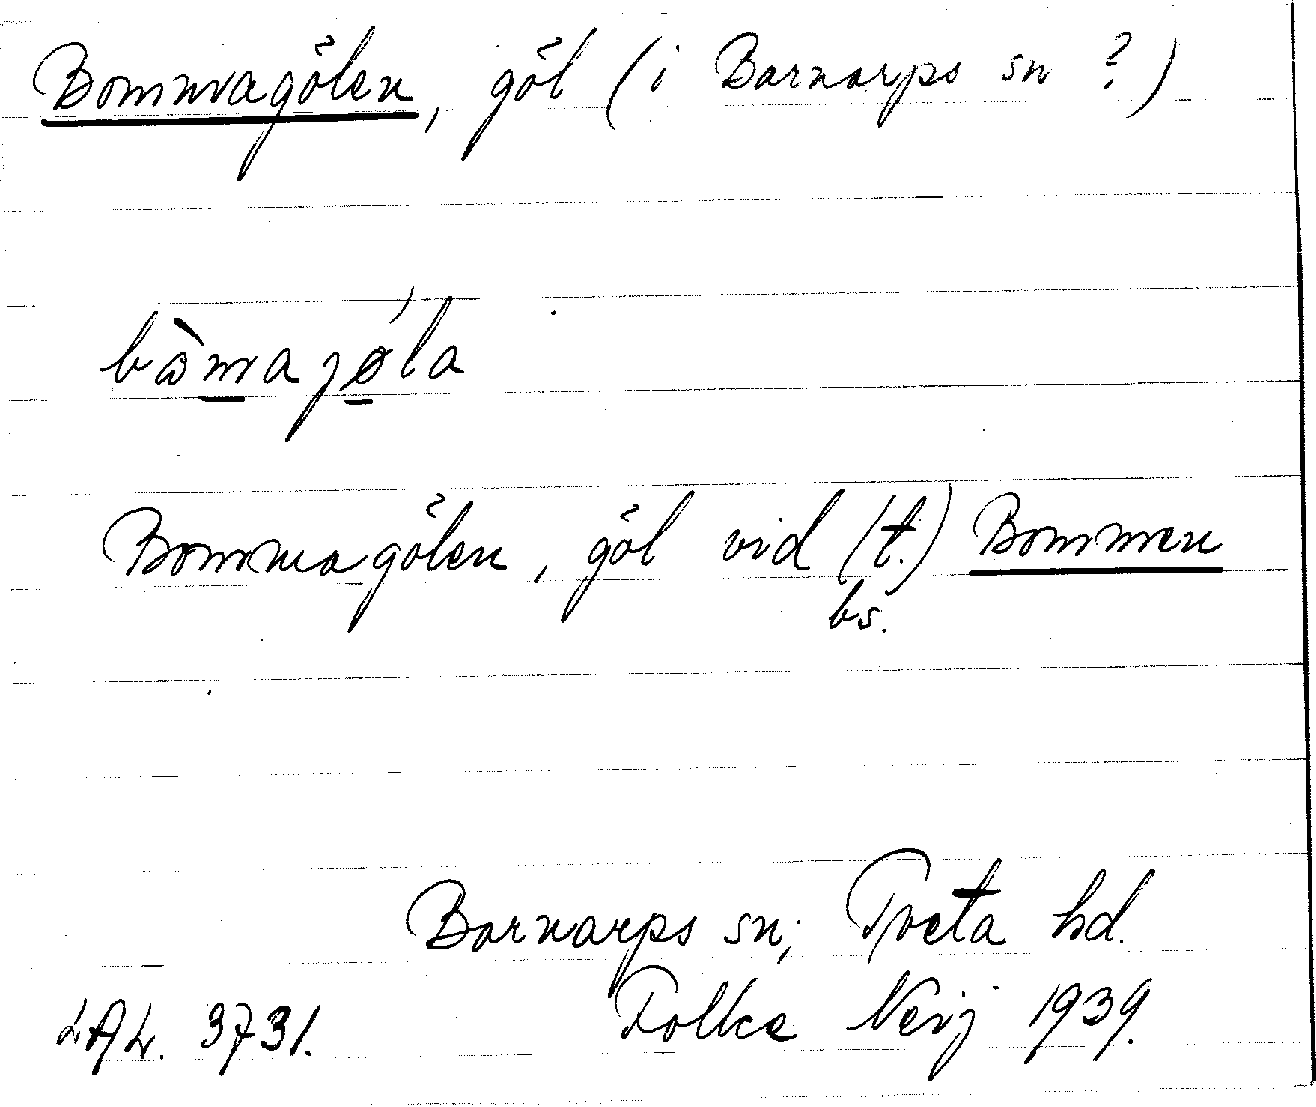 Bommagölen, göl (i Barnarps sn ?)
bòmajǿla
Bommagölen, göl vid (t.) Bommen
bs.
Barnarps sn; Tveta hd.
LAL. 3731. Folke Neij 1939.